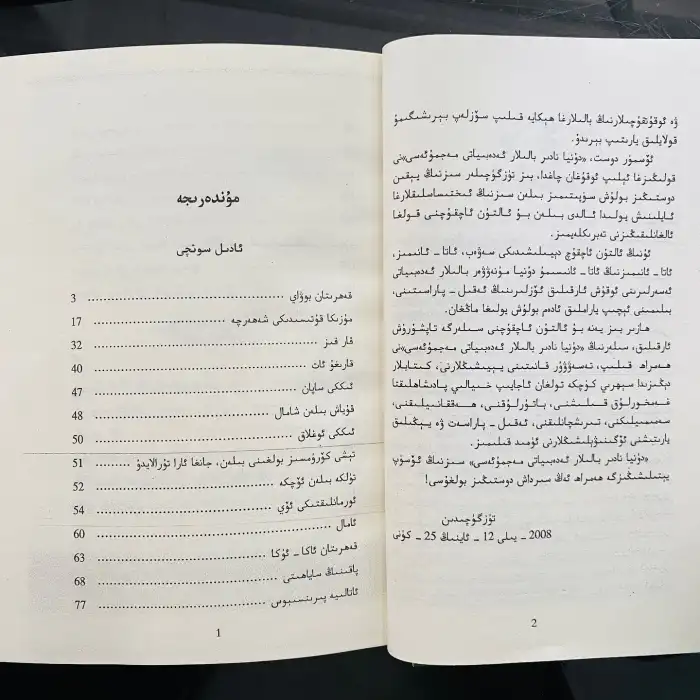 ۋە ئوقۇتقۇچىلارنىڭ بالىلارغا ھېكايە قىلىپ سۆزلەپ بېرىشىگىمۇ
قولايلىق يارىتىپ بېرىدۇ.
ئۆسمۈر دوست، «دۇنيا نادىر بالىلار ئەدەبىياتى مەجمۇئەسى»نى
قولىڭىزغا ئېلىپ ئوقۇغان چاغدا، بىز تۈزگۈچىلەر سىزنىڭ يېقىن
دوستىڭىز بولۇش سۈپىتىمىز بىلەن سىزنىڭ ئىختىساسلىقلارغا
ئايلىنىش يولىدا ئالدى بىلەن بۇ ئالتۇن ئاچقۇچنى قولغا
ئالغانلىقىڭىزنى تەبرىكلەيمىز.
ئۇنىڭ ئالتۇن ئاچقۇچ دېيىلىشىدىكى سەۋەب، ئاتا - ئانىمىز،
ئاتا - ئانىمىزنىڭ ئاتا - ئانىسىمۇ دۇنيا مۇنەۋۋەر بالىلار ئەدەبىياتى
ئەسەرلىرىنى ئوقۇش ئارقىلىق ئۆزلىرىنىڭ ئەقىل - پاراسىتىنى،
بىلىمىنى ئېچىپ ياراملىق ئادەم بولۇش يولىغا ماڭغان.
ھازىر بىز يەنە بۇ ئالتۇن ئاچقۇچنى سىلەرگە تاپشۇرۇش
ئارقىلىق، سىلەرنىڭ «دۇنيا نادىر بالىلار ئەدەبىياتى مەجمۇئەسى»نى
ھەمراھ قىلىپ، تەسەۋۋۇر قانىتىنى يېيىشىڭلارنى، كىتابلار
دېڭىزىدا سېھرىي كۈچكە تولغان ئاجايىپ خىيالىي پادىشاھلىقتا
غەمخورلۇق قىلىشنى، باتۇرلۇقنى، ھەققانىيلىقنى،
سەمىمىيلىكنى، تىرىشچانلىقنى، ئەقىل - پاراسەت ۋە يېڭىلىق
يارىتىشنى ئۆگىنىۋېلىشىڭلارنى ئۈمىد قىلىمىز.
«دۇنيا نادىر بالىلار ئەدەبىياتى مەجمۇئەسى» سىزنىڭ ئۆسۈپ
يېتىلىشىڭىزگە ھەمراھ ئەڭ سىرداش دوستىڭىز بولغۇسى!
تۈزگۈچىدىن
2008 - يىلى 12 - ئاينىڭ 25 - كۈنى
2
مۇندەرىجە
ئادىل سوتچى
قەھرىتان بوۋاي ........................ 3
مۇزىكا قۇتىسىدىكى شەھەرچە ........................ 17
قار قىز ........................ 32
قارىغۇ ئات ........................ 40
ئىككى ساپان ........................ 47
قۇياش بىلەن شامال ........................ 48
ئىككى ئوغلاق ........................ 50
تېشى كۆرۈمسىز بولغىنى بىلەن، جانغا ئارا تۇرالايدۇ ......... 51
تۈلكە بىلەن ئۆچكە ........................ 52
ئورمانلىقتىكى ئۆي ........................ 54
ئامال ........................ 60
قەھرىتان ئاكا - ئۇكا ........................ 63
پاقىنىڭ ساياھىتى ........................ 68
ئاتالىيە پىرىنسىبوس ........................ 77
1